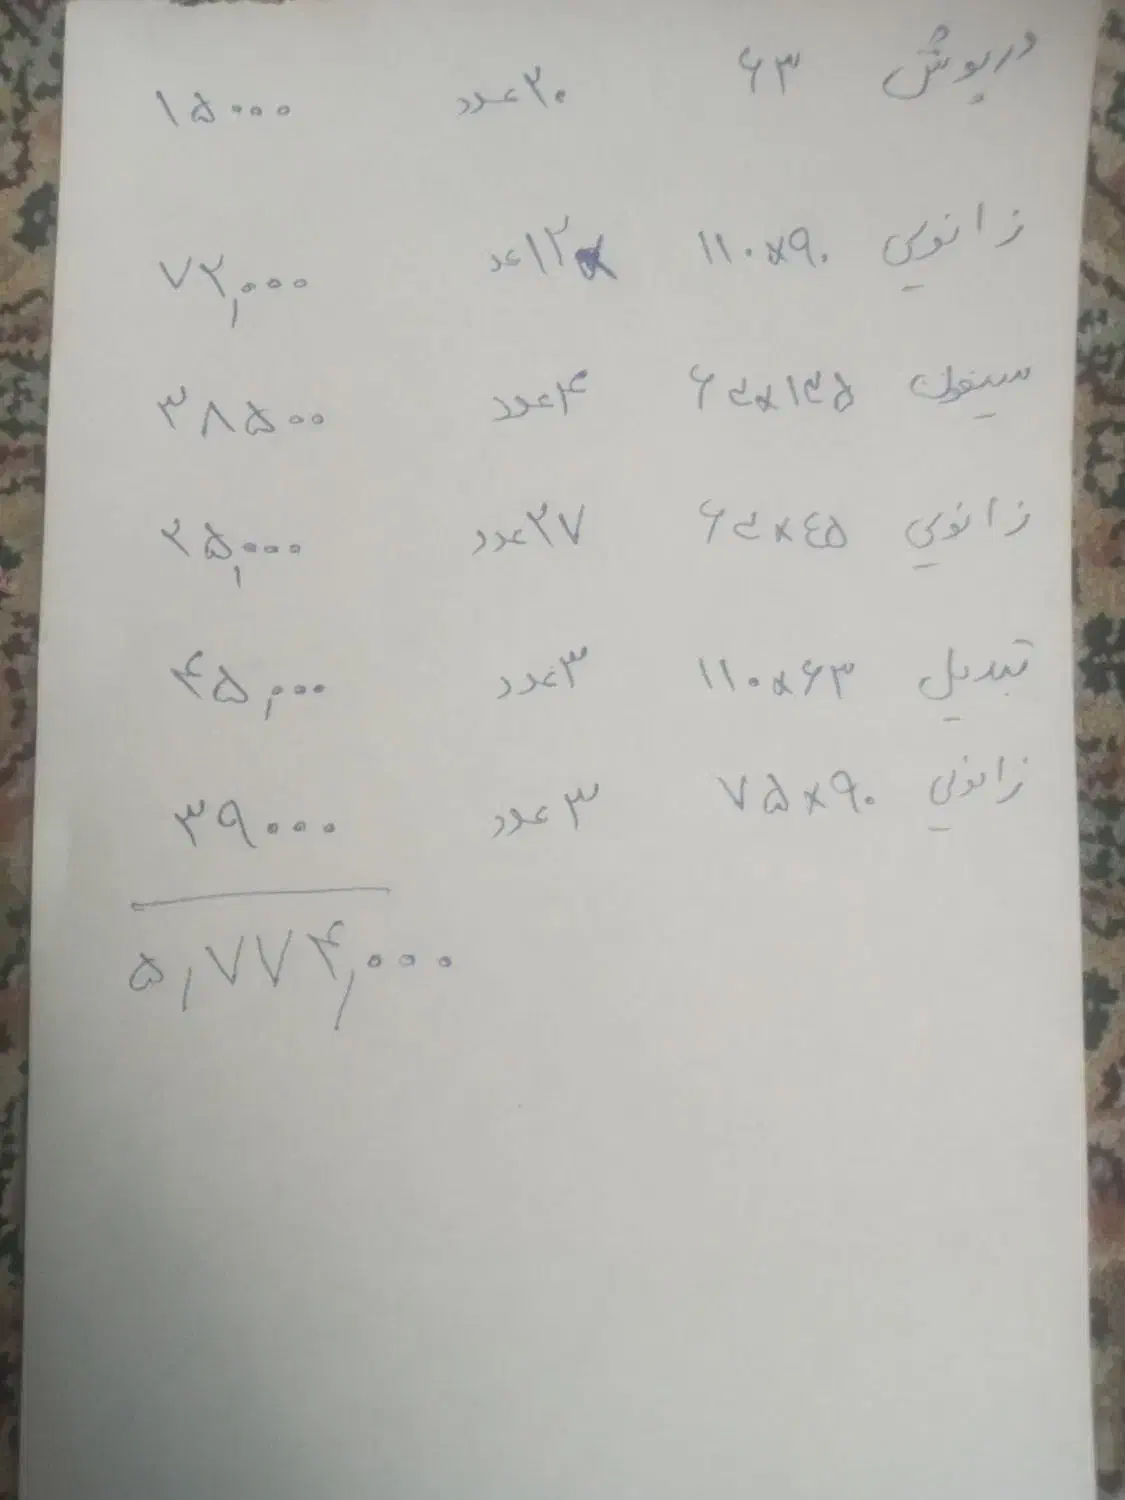 درپوش ۶۳ ۲۰ عدد ۱۵۰۰۰
زانویی ۱۱۰×۹۰ ۱۲ عدد ۷۲,۰۰۰
سیفون ۶۳×۱۲۵ ۴ عدد ۳۸۵۰۰
زانویی ۶۳×۴۵ ۲۷ عدد ۲۵,۰۰۰
تبدیل ۱۱۰×۶۳ ۳ عدد ۴۵,۰۰۰
زانویی ۷۵×۹۰ ۳ عدد ۳۹۰۰۰
۵,۷۷۴,۰۰۰